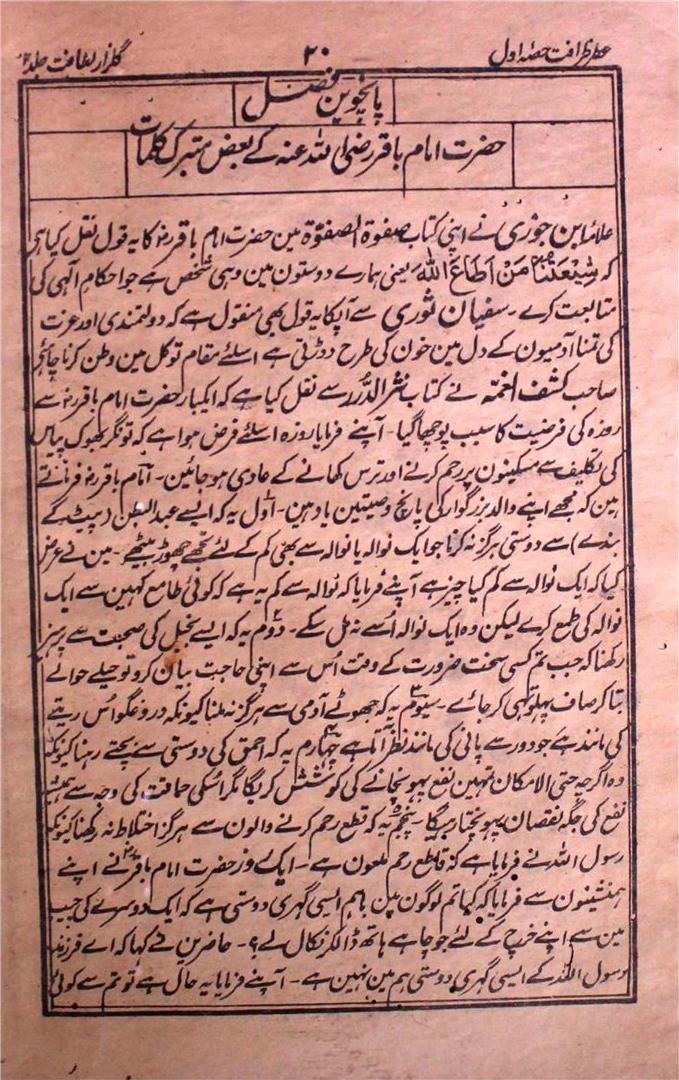 عطر ظرافت حصہ اول ۲۰ گلزار لطافت جلد
پانچوین فصل
حضرت امام باقر رضی اللہ عنہ کے بعض متبرک کلمات
علامہ ابن جوزی نے اپنی کتاب صفوۃ الصفوۃ مین حضرت امام باقرؓ کا یہ قول نقل کیا ہی
کہ شِیْعَتُنَا مَنْ اَطَاعَ اللہَ یعنی ہمارے دوستون مین وہی شخص ہے جو احکام الٰہی کی
متابعت کرے ۔ سفیان ثوری سے آپکا یہ قول بھی منقول ہے کہ دولتمندی اور عزت
کی تمنا آدمیون کے دل مین خون کی طرح دوڑتی ہے اسلئے مقام توکل مین وطن کرنا چاہئے
صاحب کشف الغمہ نے کتاب نثر الدرر سے نقل کیا ہے کہ ایکبار حضرت امام باقرؓ سے
روزہ کی فرضیت کا سبب پوچھا گیا ۔ آپنے فرمایا روزہ اسلئے فرض ہوا ہے کہ تونگر بھوک پیاس
کی تکلیف سے مسکینون پر رحم کرنے اور ترس کھانے کے عادی ہو جائین ۔ امام باقرؓ فرماتے
ہین کہ مجھے اپنے والد بزرگوار کی پانچ وصیتین یاد ہین ۔ اول یہ کہ ایسے عبد البطن (پیٹ کے
بندے) سے دوستی ہرگز نہ کرنا جو ایک نوالہ یا نوالہ سے بھی کم کے لئے تجھے چھوڑ بیٹھے ۔ مین نے عرض
کیا کہ ایک نوالہ سے کم کیا چیز ہے آپنے فرمایا کہ نوالہ سے کم یہ ہے کہ کوئی طامع کہین سے ایک
نوالہ کی طمع کرے لیکن وہ ایک نوالہ اُسے نہ مل سکے ۔ دوم یہ کہ ایسے بخیل کی صحبت سے پرہیز
رکھنا کہ جب تم کسی سخت ضرورت کے وقت اُس سے اپنی حاجت بیان کرو تو حیلے حوالے
بتا کر صاف پہلو تہی کر جائے ۔ سیوم یہ کہ جھوٹے آدمی سے ہرگز نہ ملنا کیونکہ دروغگو اُس ریتے
کی مانند ہے جو دور سے پانی کی مانند نظر آتا ہے چہارم یہ کہ احمق کی دوستی سے بچتے رہنا کیونکہ
وہ اگرچہ حتی الامکان تمہین نفع پہونچانے کی کوشش کریگا مگر اسکی حماقت کی وجہ سے ہمیشہ
نفع کی جگہ نقصان پہونچتا رہیگا پنجم یہ کہ قطع رحم کرنے والون سے ہرگز اختلاط نہ رکھنا کیونکہ
رسول اللہ نے فرمایا ہے کہ قاطع رحم ملعون ہے ۔ ایک روز حضرت امام باقرؓ نے اپنے
ہمنشینون سے فرمایا کہ کیا تم لوگون مین باہم ایسی گہری دوستی ہے کہ ایک دوسرے کی جیب
مین سے اپنے خرچ کے لئے جو چاہے ہاتھ ڈالکر نکال لے ؟ ۔ حاضرین نے کہا کہ اے فرزند
رسول اللہ کے ایسی گہری دوستی ہم مین نہین ہے ۔ آپنے فرمایا یہ حال ہے تو تم سے کوئی